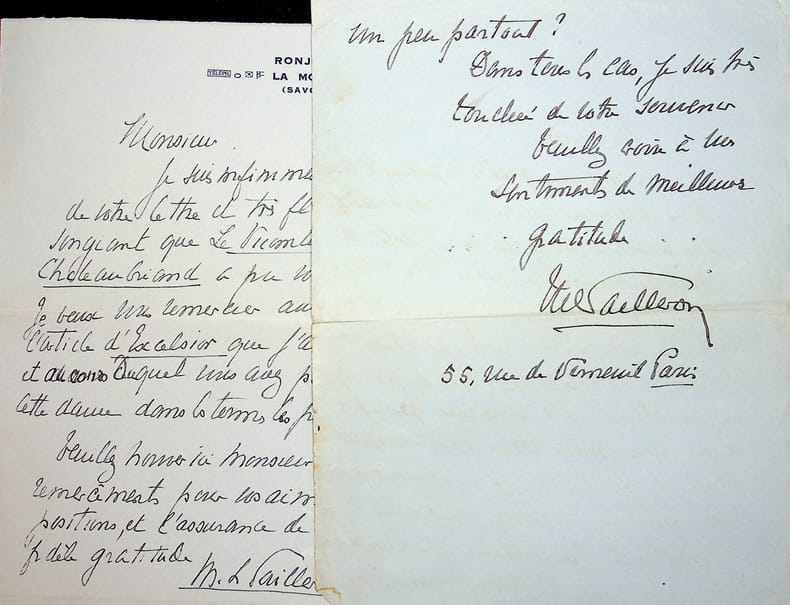 RONJ
TÉLÉPH.
LA MO
(SAVO
Monsieur
Je suis infiniment
de votre lettre et très fl
songeant que Le Vicomte
Chateaubriand a pu vo
Je veux vous remercier au
l'article d'Excelsior que j'a
et au cours Duquel vous avez p
cette dame dans les termes les p
Veuillez trouver ici Monsieur
remerciements pour vos aim
positions, et l'assurance de
fidèle gratitude
M. L Pailler
un peu partout ?
Dans tous les cas, je suis très
touchée de votre souvenir
Veuillez croire à mes
sentiments de meilleure
gratitude
ML Pailleron
55, rue de Verneuil Paris